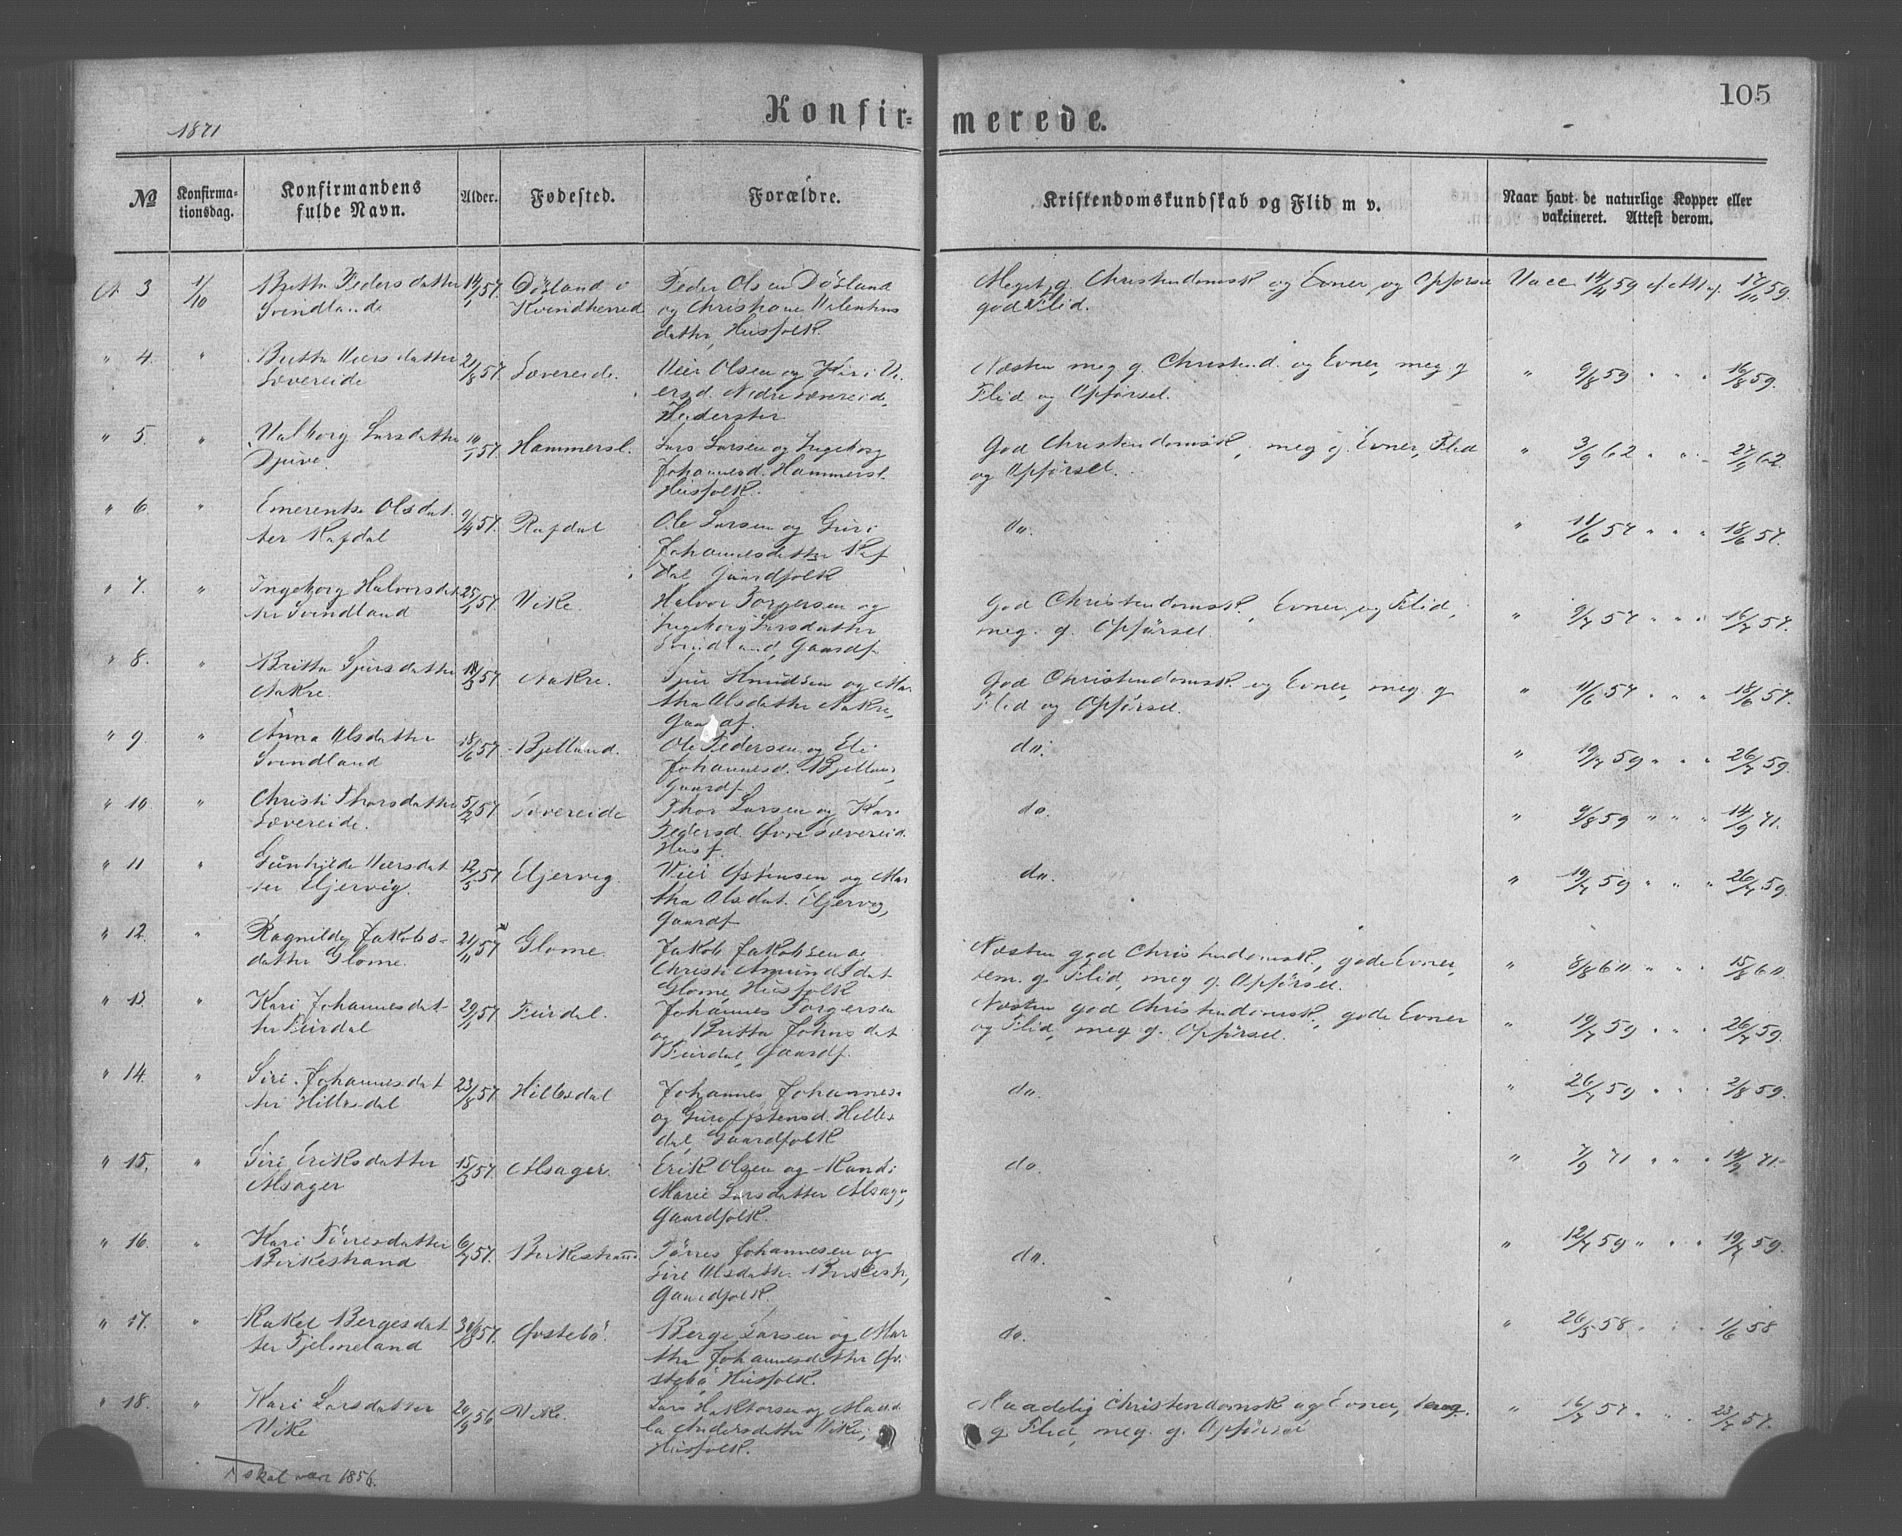 105
Konfir=
merede.
1871
No
Konfirma-
tionsdag.
Konfirmandens
fulde Navn.
Alder.
Fødested.
Forældre.
Kristendomskundskab og Flid m v.
Naar havt de naturlige Kopper eller
vakcineret. Attest derom.
3 1/10 Britta Pedersdatter 14/1 57. Peder Olsen
Svindland Kvindherred og Christiane Valentins
datter, Husfolk.
Meget g. Christendomsk og Evner, og Opførsel Vacc 14/11 59 17/11 59.
god Flid.
" 4. " Britta Viersdatter 21/8 57. Sævereide. Vier Olsen og Kari Vi
Sævereide ersd. Nedre Sævereide,
Næsten meg g. Christend. og Evner, meg g " 9/8 59 " " " 16/8 59.
Flid og Opførsel.
" 5. " Valborg Larsdatter 57 Hammersl. Lars Larsen og Ingeborg
Djuve. Johannesd. Hammersl.
Husfolk.
God Christendomsk, meg g. Evner, Flid " 3/9 62 " " " 27/9 62
og Opførsel.
" 6. " Emerentse Olsdat 9/4 57. Rafdal Ole Larsen og Guri
ter Rafdal Johannesdatter Raf
dal Gaardfolk
do. " 11/6 57 " " " 18/6 57.
" 7. " Ingeborg Halvorsdat 25/1 57. Vike. Halvor Torgersen og
ter Svindland Ingeborg Larsdatter
Svindland, Gaardf
God Christendomsk, Evner, og Flid, " 9/7 57 " " " 16/7 57.
meg. g. Opførsel.
" 8. " Britta Sjursdatter 57 Aakre. Sjur Knudsen og Mar
Aakre. tha Olsdatter Aakre,
Gaardf.
God Christendomsk. og Evner, meg. g " 11/6 57 " " " 18/6 57.
Flid og Opførsel.
" 9. " Anna Olsdatter 18/6 57. Bjelland. Ole Pedersen og Eli
Svindland Johannesd. Bjelland,
Gaardf.
do. " 19/7 59 " " " 26/7 59.
" 10. " Christi Thorsdatter 5/2 57. Sævereide Thor Larsen og Kari
Sævereide. Pedersd. Øvre Sævereid.
Husf.
do. " 9/8 59 " " " 14/9 71.
" 11 " Gunhilde Viersdat 12/5 57 Eljervig. Vier Østensen og Mar
ter Eljervig. tha Olsdat. Eljervig,
Gaardf
do. " 19/7 59 " " " 26/7 59.
" 12. " Ragnilde Jakobs- 21/11 57 Glome. Jakob Jakobsen og
datter Glome. Christi Amundsdat
Glome Husfolk
Næsten god Christendomsk., gode Evner, " 8/8 60 " " " 15/8 60
tem. g. Flid, meg g. Opførsel.
" 13. " Kari Johannesdat 29/1 57 Feirdal. Johannes Torgersen
ter Feirdal og Britta Johnsdat
Feirdal, Gaardf.
Næsten god Christendomsk., gode Evner " 19/7 59 " " " 26/7 59.
og Flid, meg g. Opførsel.
" 14. " Siri Johannesdat 23/8 57. Hillesdal Johannes Johannes.
ter Hillesdal og Guro Østensd. Hilles
dal, Gaardfolk
do. " 26/7 59 " " " 2/8 59.
" 15. " Siri Eriksdatter 15/3 57. Alsager. Erik Olsen og Randi
Alsager Marie Larsdatter Alsag.,
Gaardfolk.
do. " 7/9 71 " " " 14/9 71.
" 16. " Kari Tørresdatter 6/7 57. Birkestrand Tørres Johannesen og
Birkestrand Siri Olsdatter Birkestr,
Gaardfolk.
do. " 12/7 59 " " " 19/7 59.
" 17. " Rakel Bergesdat 57. Østebø. Berge Larsen og Mar
ter Fjelmeland tha Johannesdatter Øv
stebø Husfolk.
do. " 26/5 58. " " 1/6 58
" 18. " Kari Larsdatter 56 Vike. Lars Haktorsen og
Vike Andersdatter Vike,
Husfolk.
Maadelig Christendomsk og Evner, " 16/7 57 " " " 23/7 57.
g. Flid, meg. g. Opførsel
skal være 1856.